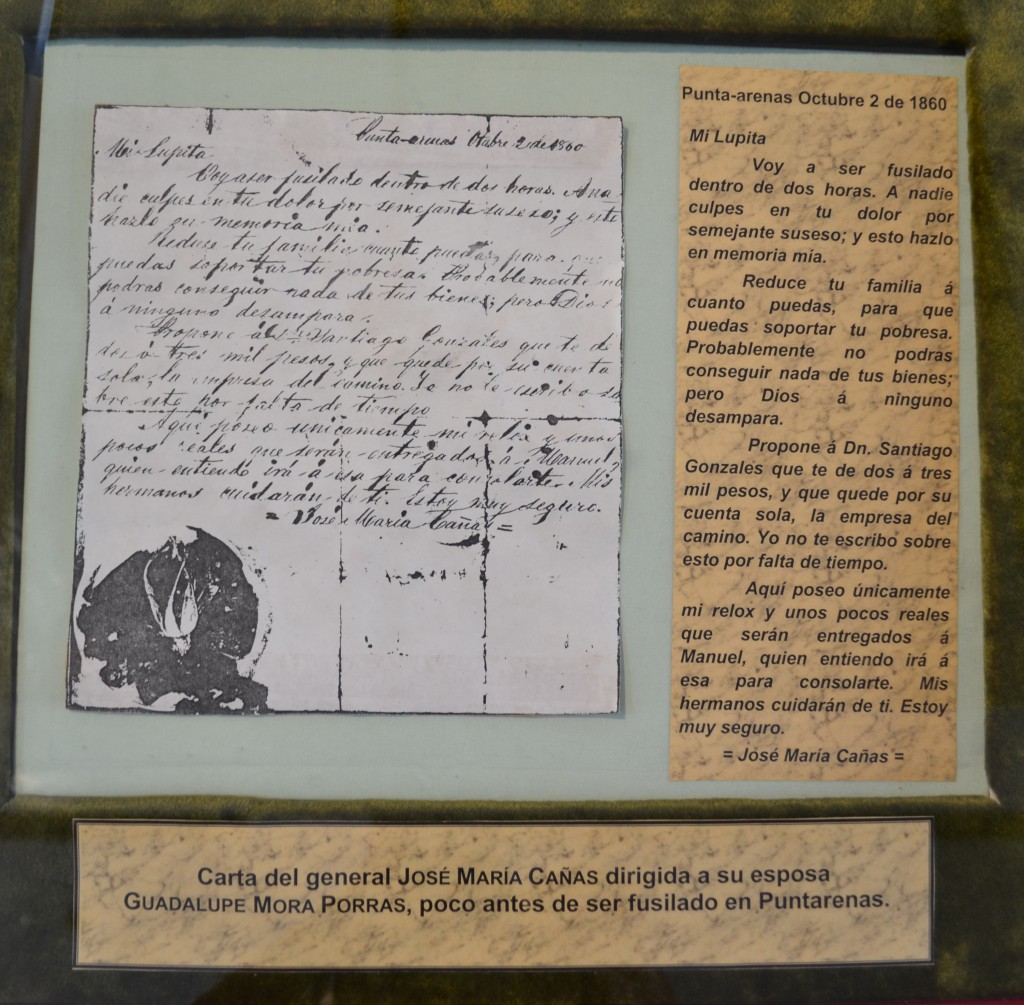 Punta-arenas Octubre 2 de 1860
Mi Lupita
Voy a ser fusilado dentro de dos horas. A na-
die culpes en tu dolor por semejante suseso; y esto
hazlo en memoria mia.
Reduse tu familia cuanto puedas, para que
puedas soportar tu pobresa. Probablemente no
podras conseguir nada de tus bienes; pero Dios
á ninguno desampara.
Propone á Dn. Santiago Gonzales que te dé
dos ó tres mil pesos, y que quede por su cuenta
sola, la empresa del camino. Yo no te escribo so-
bre esto por falta de tiempo
Aqui poseo unicamente mi relox y unos
pocos reales que serán entregados á Manuel,
quien entiendo irá á esa para consolarte. Mis
hermanos cuidarán de ti. Estoy muy seguro.
= José Maria Cañas =
Punta-arenas Octubre 2 de 1860
Mi Lupita
Voy a ser fusilado
dentro de dos horas. A nadie
culpes en tu dolor por
semejante suseso; y esto hazlo
en memoria mía.
Reduce tu familia á
cuanto puedas, para que
puedas soportar tu pobresa.
Probablemente no podrás
conseguir nada de tus bienes;
pero Dios á ninguno
desampara.
Propone á Dn. Santiago
Gonzales que te de dos á tres
mil pesos, y que quede por su
cuenta sola, la empresa del
camino. Yo no te escribo sobre
esto por falta de tiempo.
Aquí poseo únicamente
mi relox y unos pocos reales
que serán entregados á
Manuel, quien entiendo irá á
esa para consolarte. Mis
hermanos cuidarán de ti. Estoy
muy seguro.
= José María Cañas =
Carta del general JOSÉ MARÍA CAÑAS dirigida a su esposa
GUADALUPE MORA PORRAS, poco antes de ser fusilado en Puntarenas.